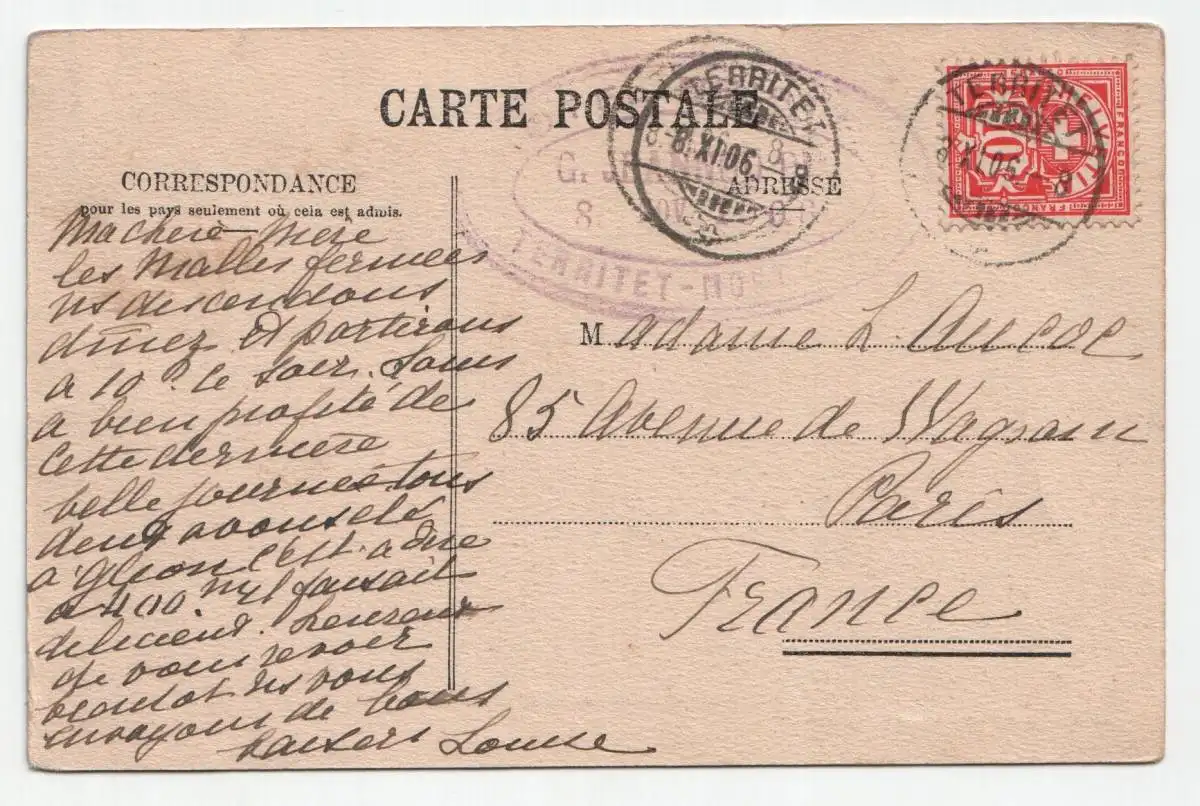 CARTE POSTALE
CORRESPONDANCE
pour les pays seulement où cela est admis.
ADRESSE
TERRITET
8.XI.06
TERRITET
XI.06
HELVETIA
10
FRANCO
TERRITET-MON
Ma chère mère
les Malles fermées
ns descendons
dîner et partirons
à 10h le soir. Louis
a bien profité de
cette dernière
belle journée tous
deux avons été
à Glion c'est à dire
à 400 m il faisait
délicieux. heureux
de vous revoir
bientôt ns vous
envoyons de bons
baisers Louise
Madame L. Aucoc
85 Avenue de Wagram
Paris
France